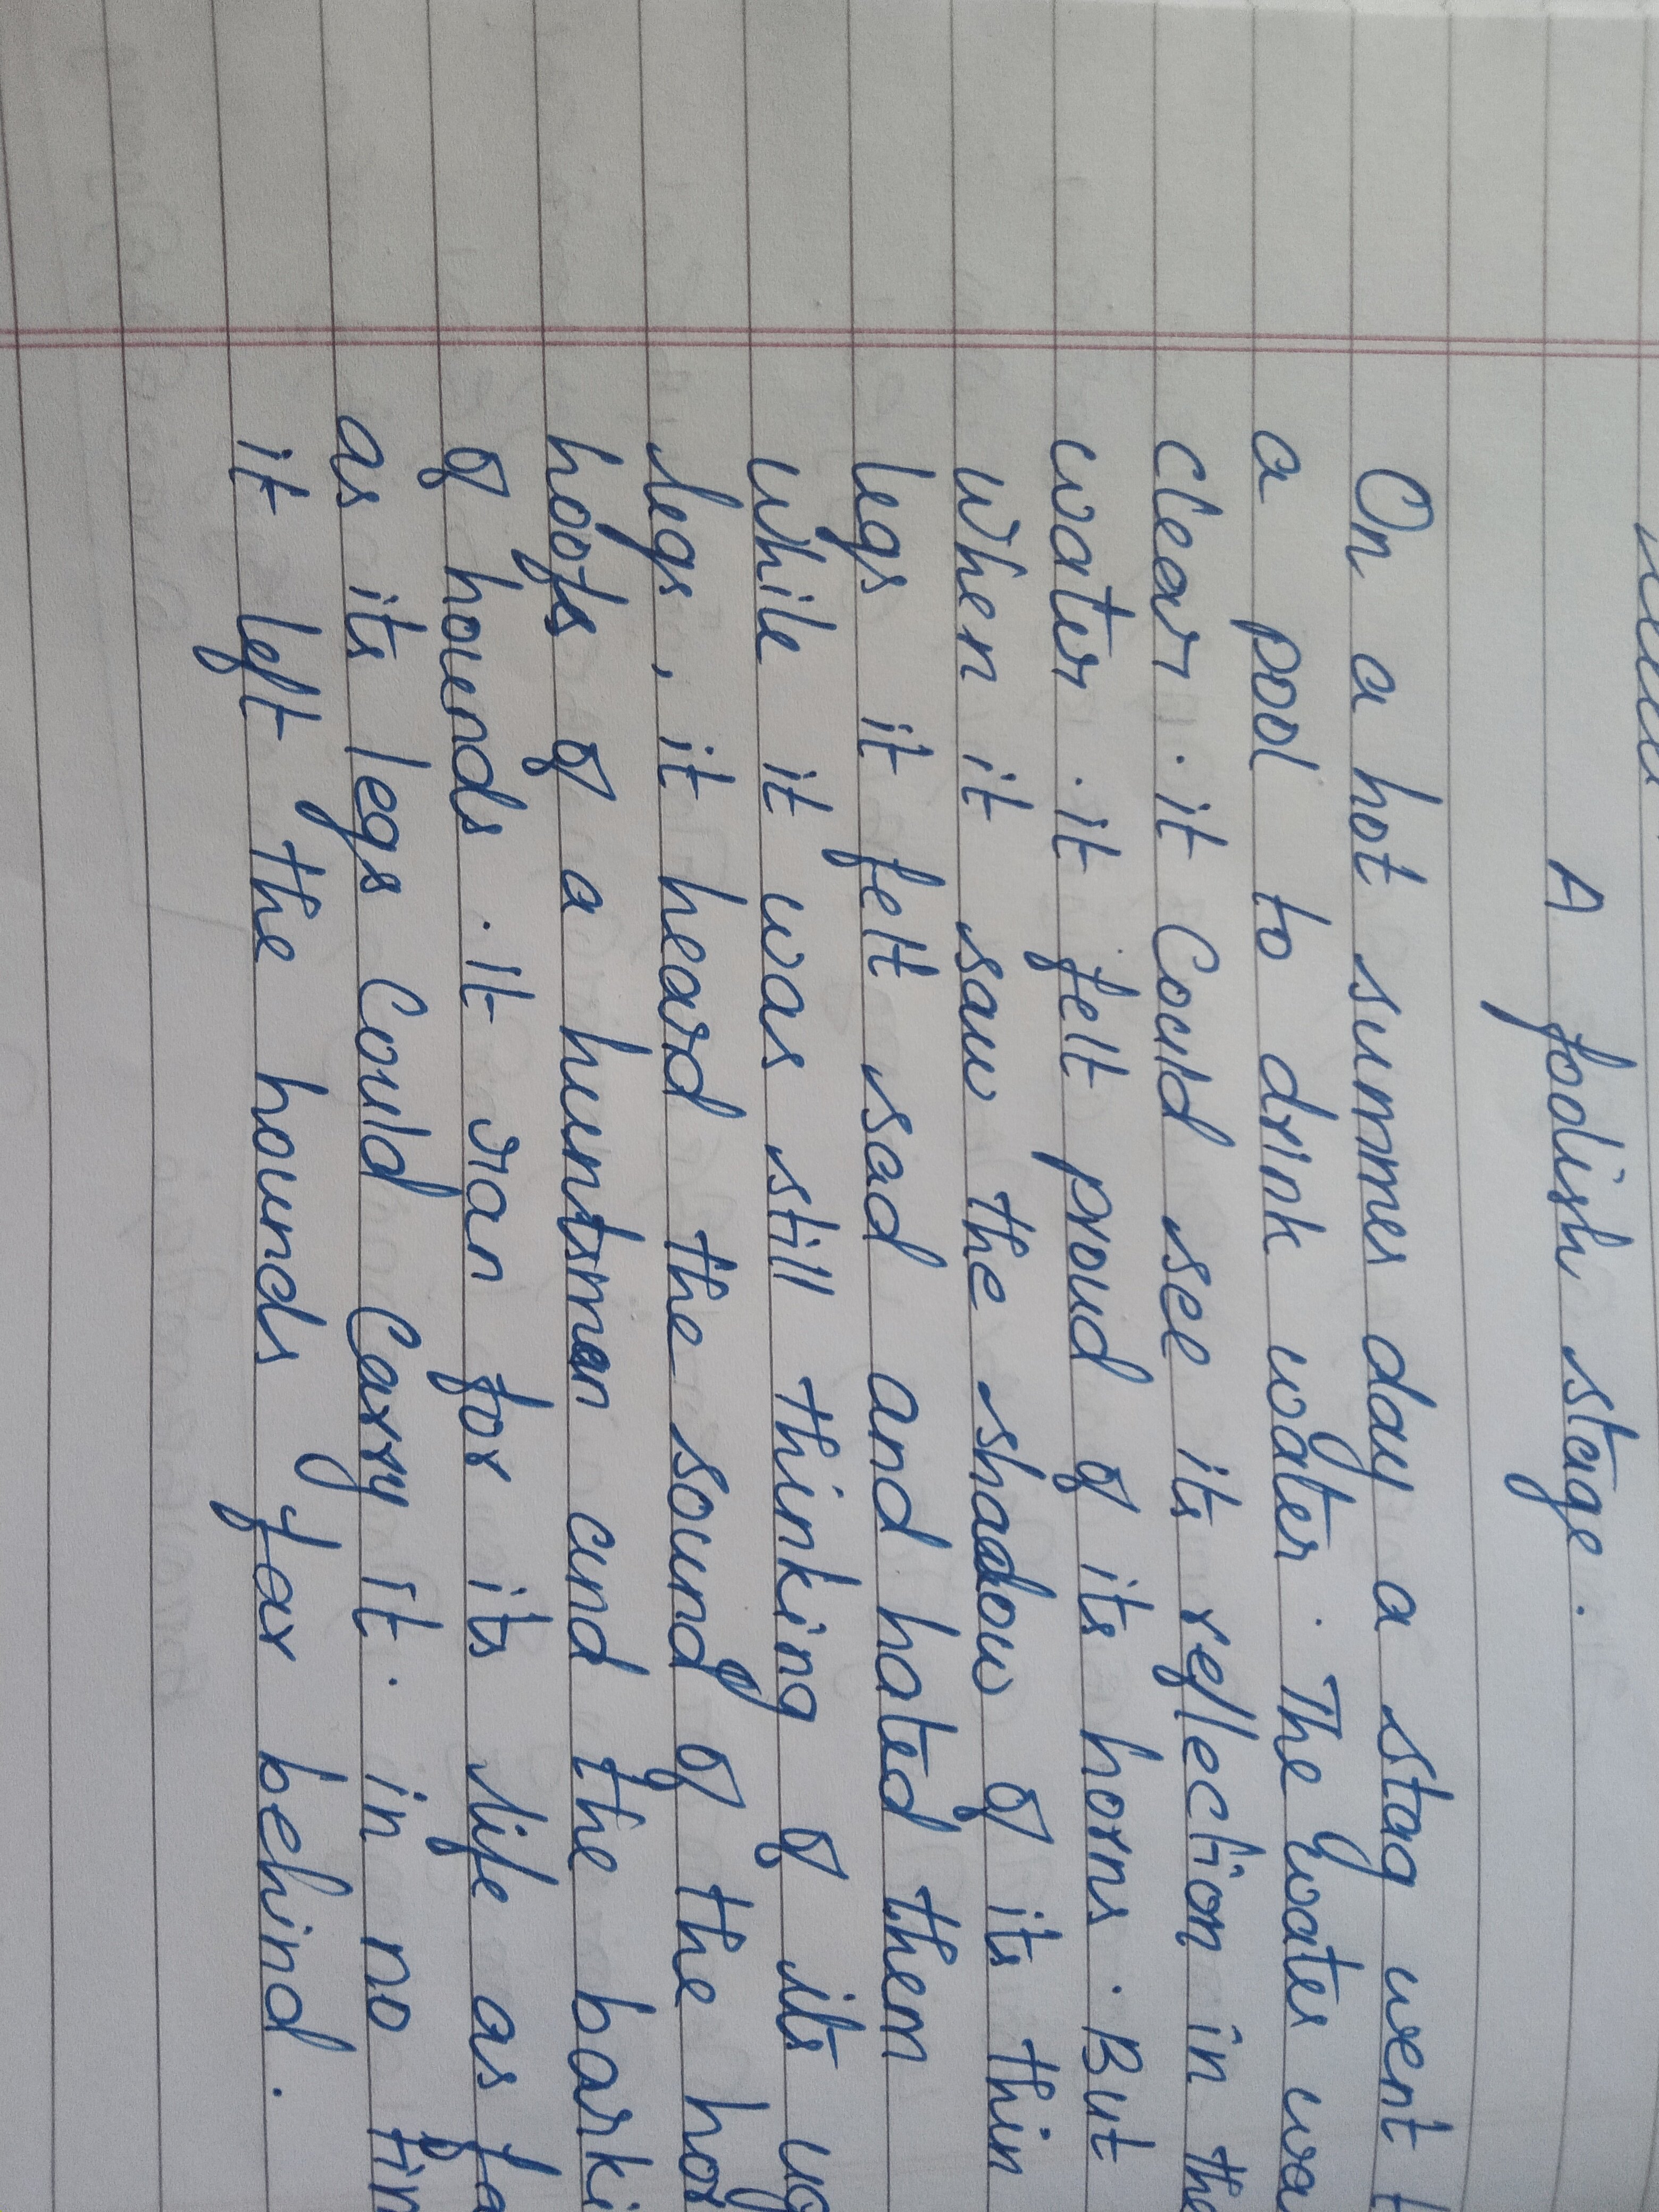 A foolish stage.
On a hot summer day a stag went
a pool to drink water. The water
clear. it Could see its reflection in
water. it felt proud of its horns. But
when it saw the shadow of its thin
legs it felt sad and hated them
while it was still thinking of its
legs, it heard the sound of the
hoofs of a huntsman and the
of hounds. It ran for its life as
as its legs Could Carry it. in no
it left the hounds far behind.